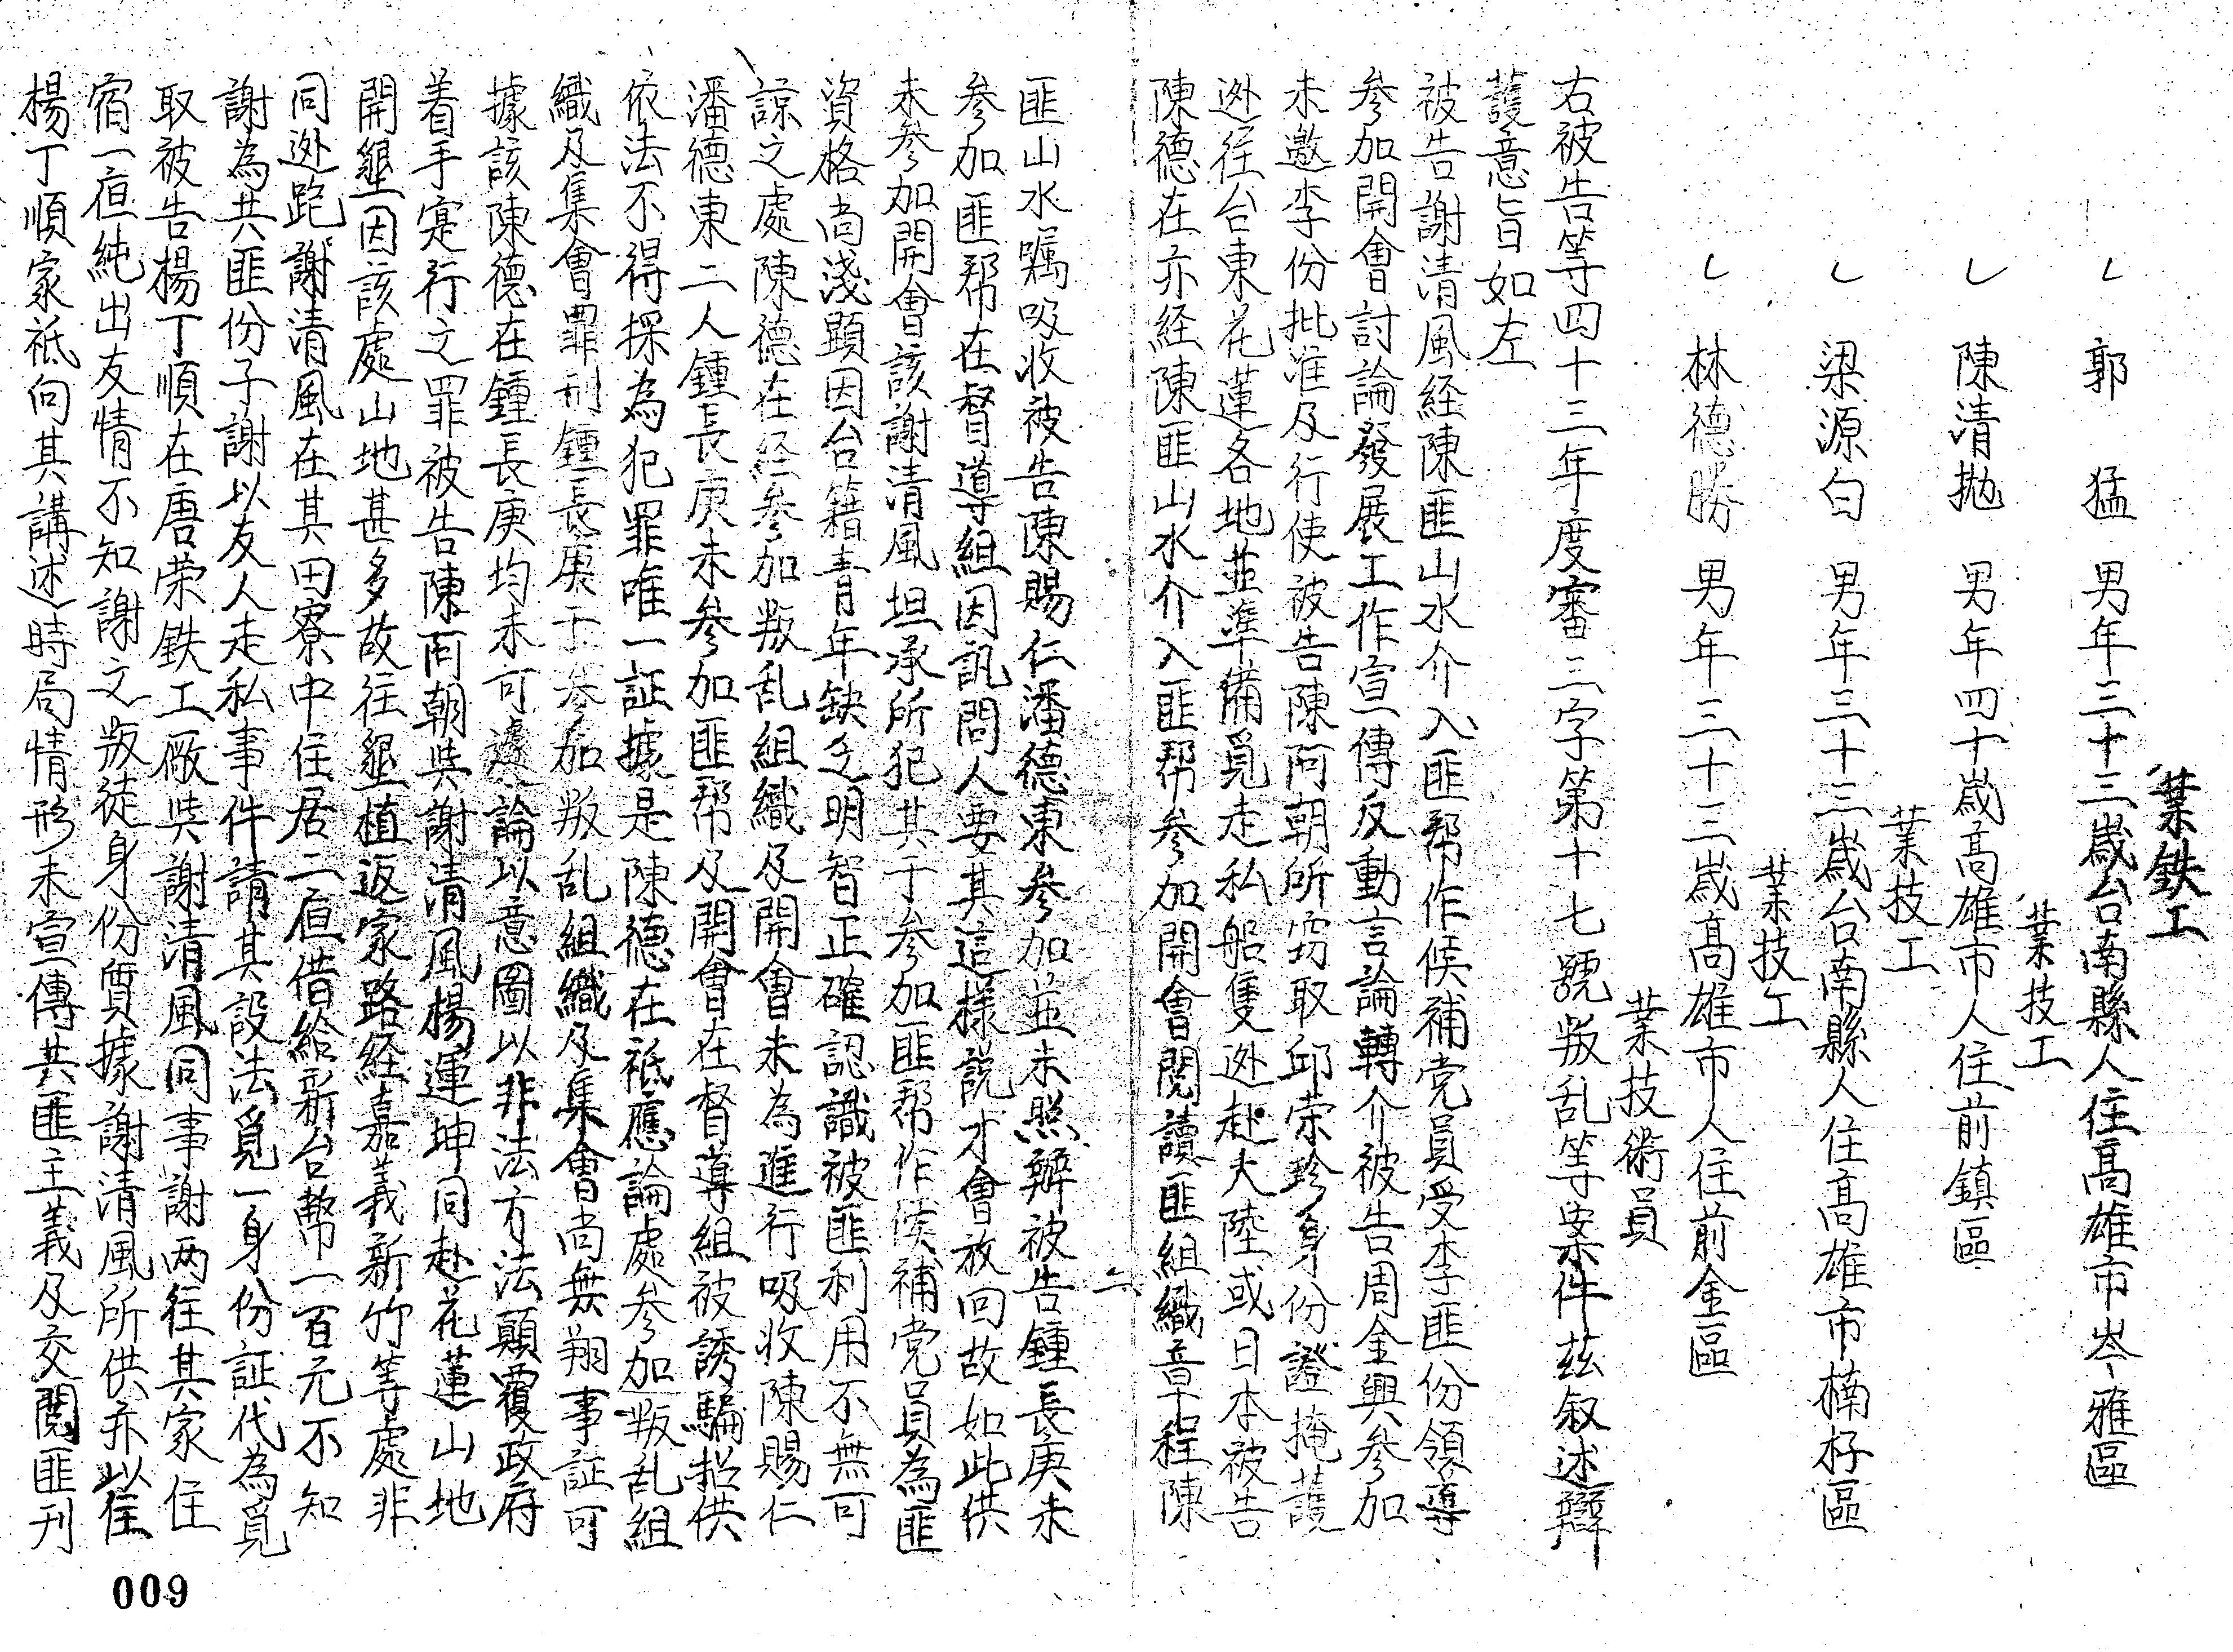 業鉄工
乚 郭 猛 男年三十三歲台南縣人住高雄市岑雅區
業技工
乚 陳清拋 男年四十歲高雄市人住前鎮區
業技工
乚 梁源白 男年三十三歲台南縣人住高雄市楠梓區
業技工
乚 林德勝 男年三十三歲高雄市人住前金區
業技術員
右被告等四十三年度審三字第十七號叛乱等案件茲叙述辯
護意旨如左
被告謝清風経陳匪山水介入匪帮作候補党員受李匪份領導
参加開會討論發展工作宣傳反動言論轉介被告周金興参加
未邀李份批准及行使被告陳阿朝所窃取邱荣珍身份證掩護
迯往台東花蓮各地並準備覓走私船隻迯赴大陸或日本被告
陳德在亦経陳匪山水介入匪帮参加開會閱讀匪組織章程陳
二
匪山水囑吸收被告陳賜仁潘德東参加並未照辦被告鍾長庚未
参加匪帮在督導組因訊問人要其這様說才會放回故如此供
未参加開會該謝清風坦承所犯其于参加匪帮作候補党員為匪
資格尚淺顯因台籍青年缺乏明智正確認識被匪利用不無可
諒之處陳德在経参加叛乱組織及開會未為進行吸收陳賜仁
潘德東二人鍾長庚未参加匪帮及開會在督導組被誘騙招供
依法不得採為犯罪唯一証據是陳德在祗應論處参加叛乱組
織及集會罪刑鍾長庚于参加叛乱組織及集會尚無翔事証可
據該陳德在鍾長庚均未可遽論以意圖以非法方法顛覆政府
着手寔行之罪被告陳阿朝與謝清風楊運坤同赴花蓮山地
開墾因該處山地甚多故往墾植返家路経嘉義新竹等處非
同迯跑謝清風在其田寮中住居二宿借給新台幣一百元不知
謝為共匪份子謝以友人走私事件請其設法覓一身份証代為覓
取被告楊丁順在唐荣鉄工廠與謝清風同事謝两往其家住
宿一宿純出友情不知謝之叛徒身份質據謝清風所供亦以住
楊丁順家祗向其講述時局情形未宣傳共匪主義及交閱匪刊
009